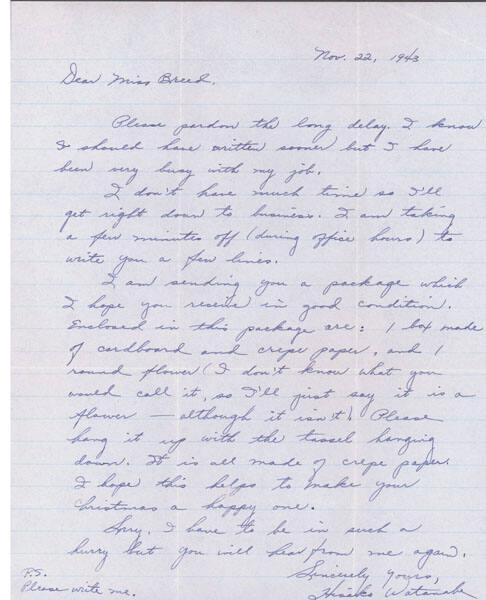 Nov. 22, 1943
Dear Miss Breed,
Please pardon the long delay. I know
I should have written sooner but I have
been very busy with my job.
I don't have much time so I'll
get right down to business. I am taking
a few minutes off (during office hours) to
write you a few lines.
I am sending you a package which
I hope you receive in good condition.
Enclosed in this package are: 1 box made
of cardboard and crepe paper, and 1
round flower (I don't know what you
would call it, so I'll just say it is a
flower — although it isn't). Please
hang it up with the tassel hanging
down. It is all made of crepe paper.
I hope this helps to make your
Christmas a happy one.
Sorry, I have to be in such a
hurry but you will hear from me again.
Sincerely yours,
Hisako Watanabe
P.S.
Please write me.